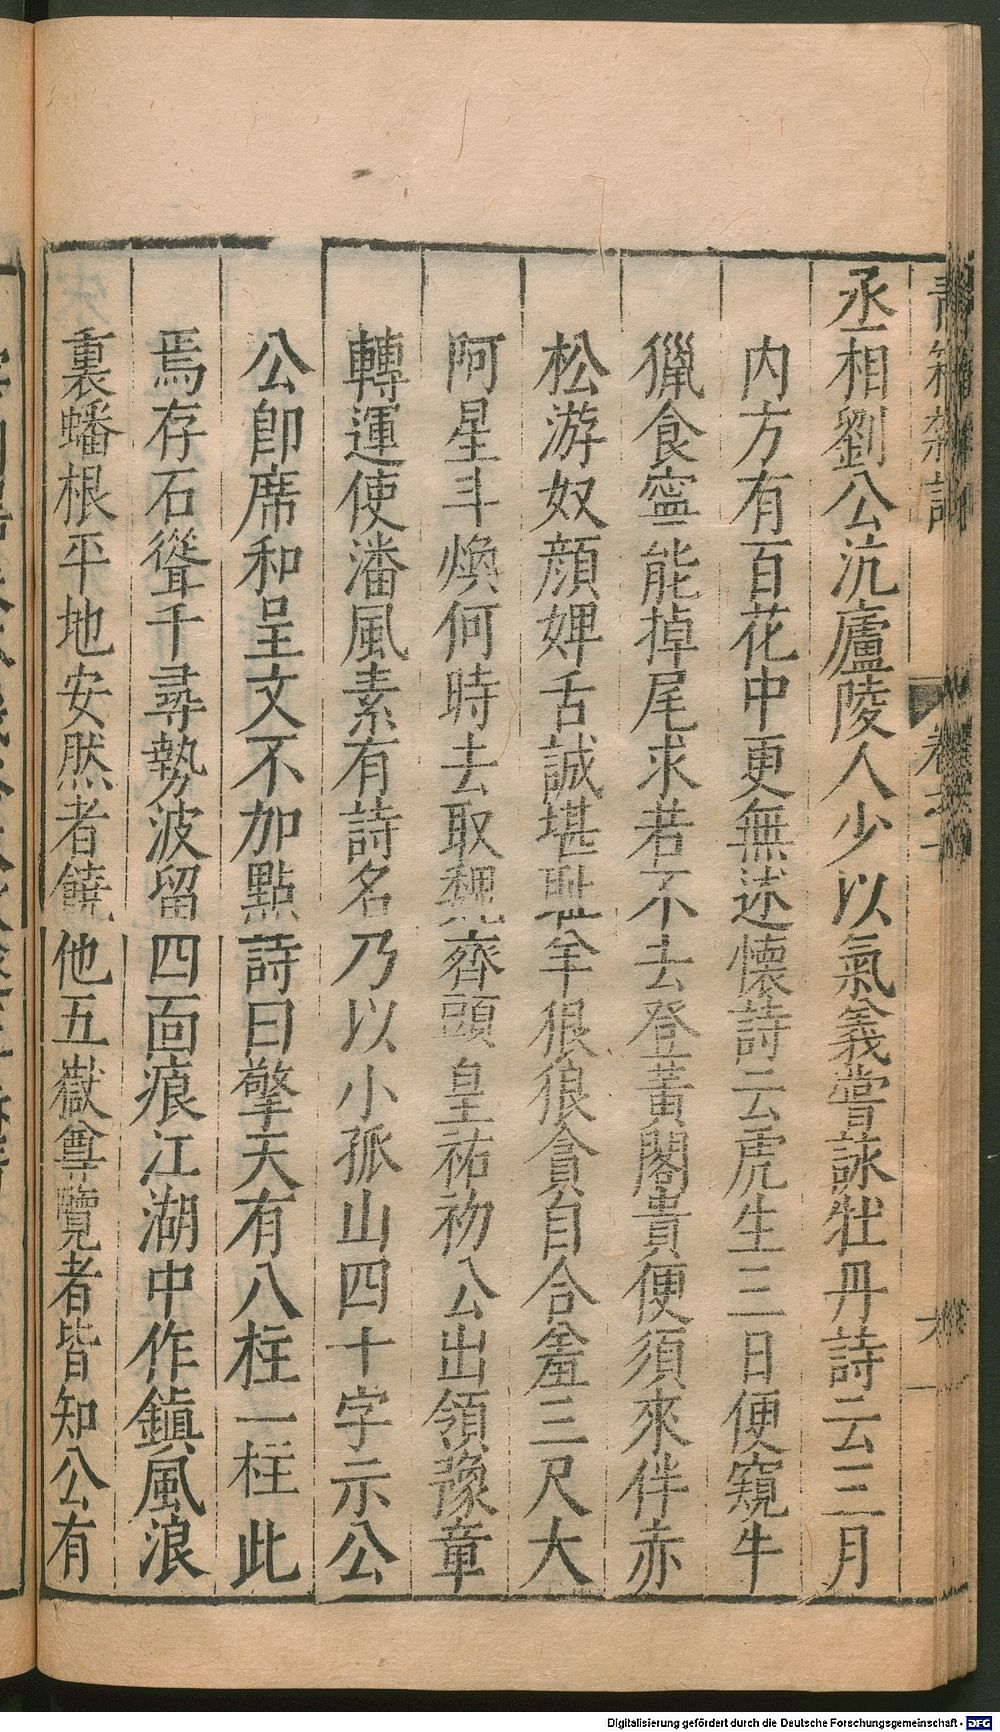 丞相劉公沆廬陵人少以氣義嘗詠牡丹詩云三月
内方有百花中更無述懷詩云虎生三日便窺牛
獵食寧能掉尾求若不去登黃閣貴便須來伴赤
松游奴顔婢舌誠堪恥羊狠狼貪自合羞三尺大
阿星斗煥何時去取魏齊頭皇祐初公出領豫章
轉運使潘風素有詩名乃以小孤山四十字示公
公卽席和呈文不加點詩曰擎天有八柱一柱此
焉存石聳千尋勢波留四面痕江湖中作鎮風浪
裏蟠根平地安然者饒他五嶽尊覽者皆知公有
Digitalisierung gefördert durch die Deutsche Forschungsgemeinschaft - DFG